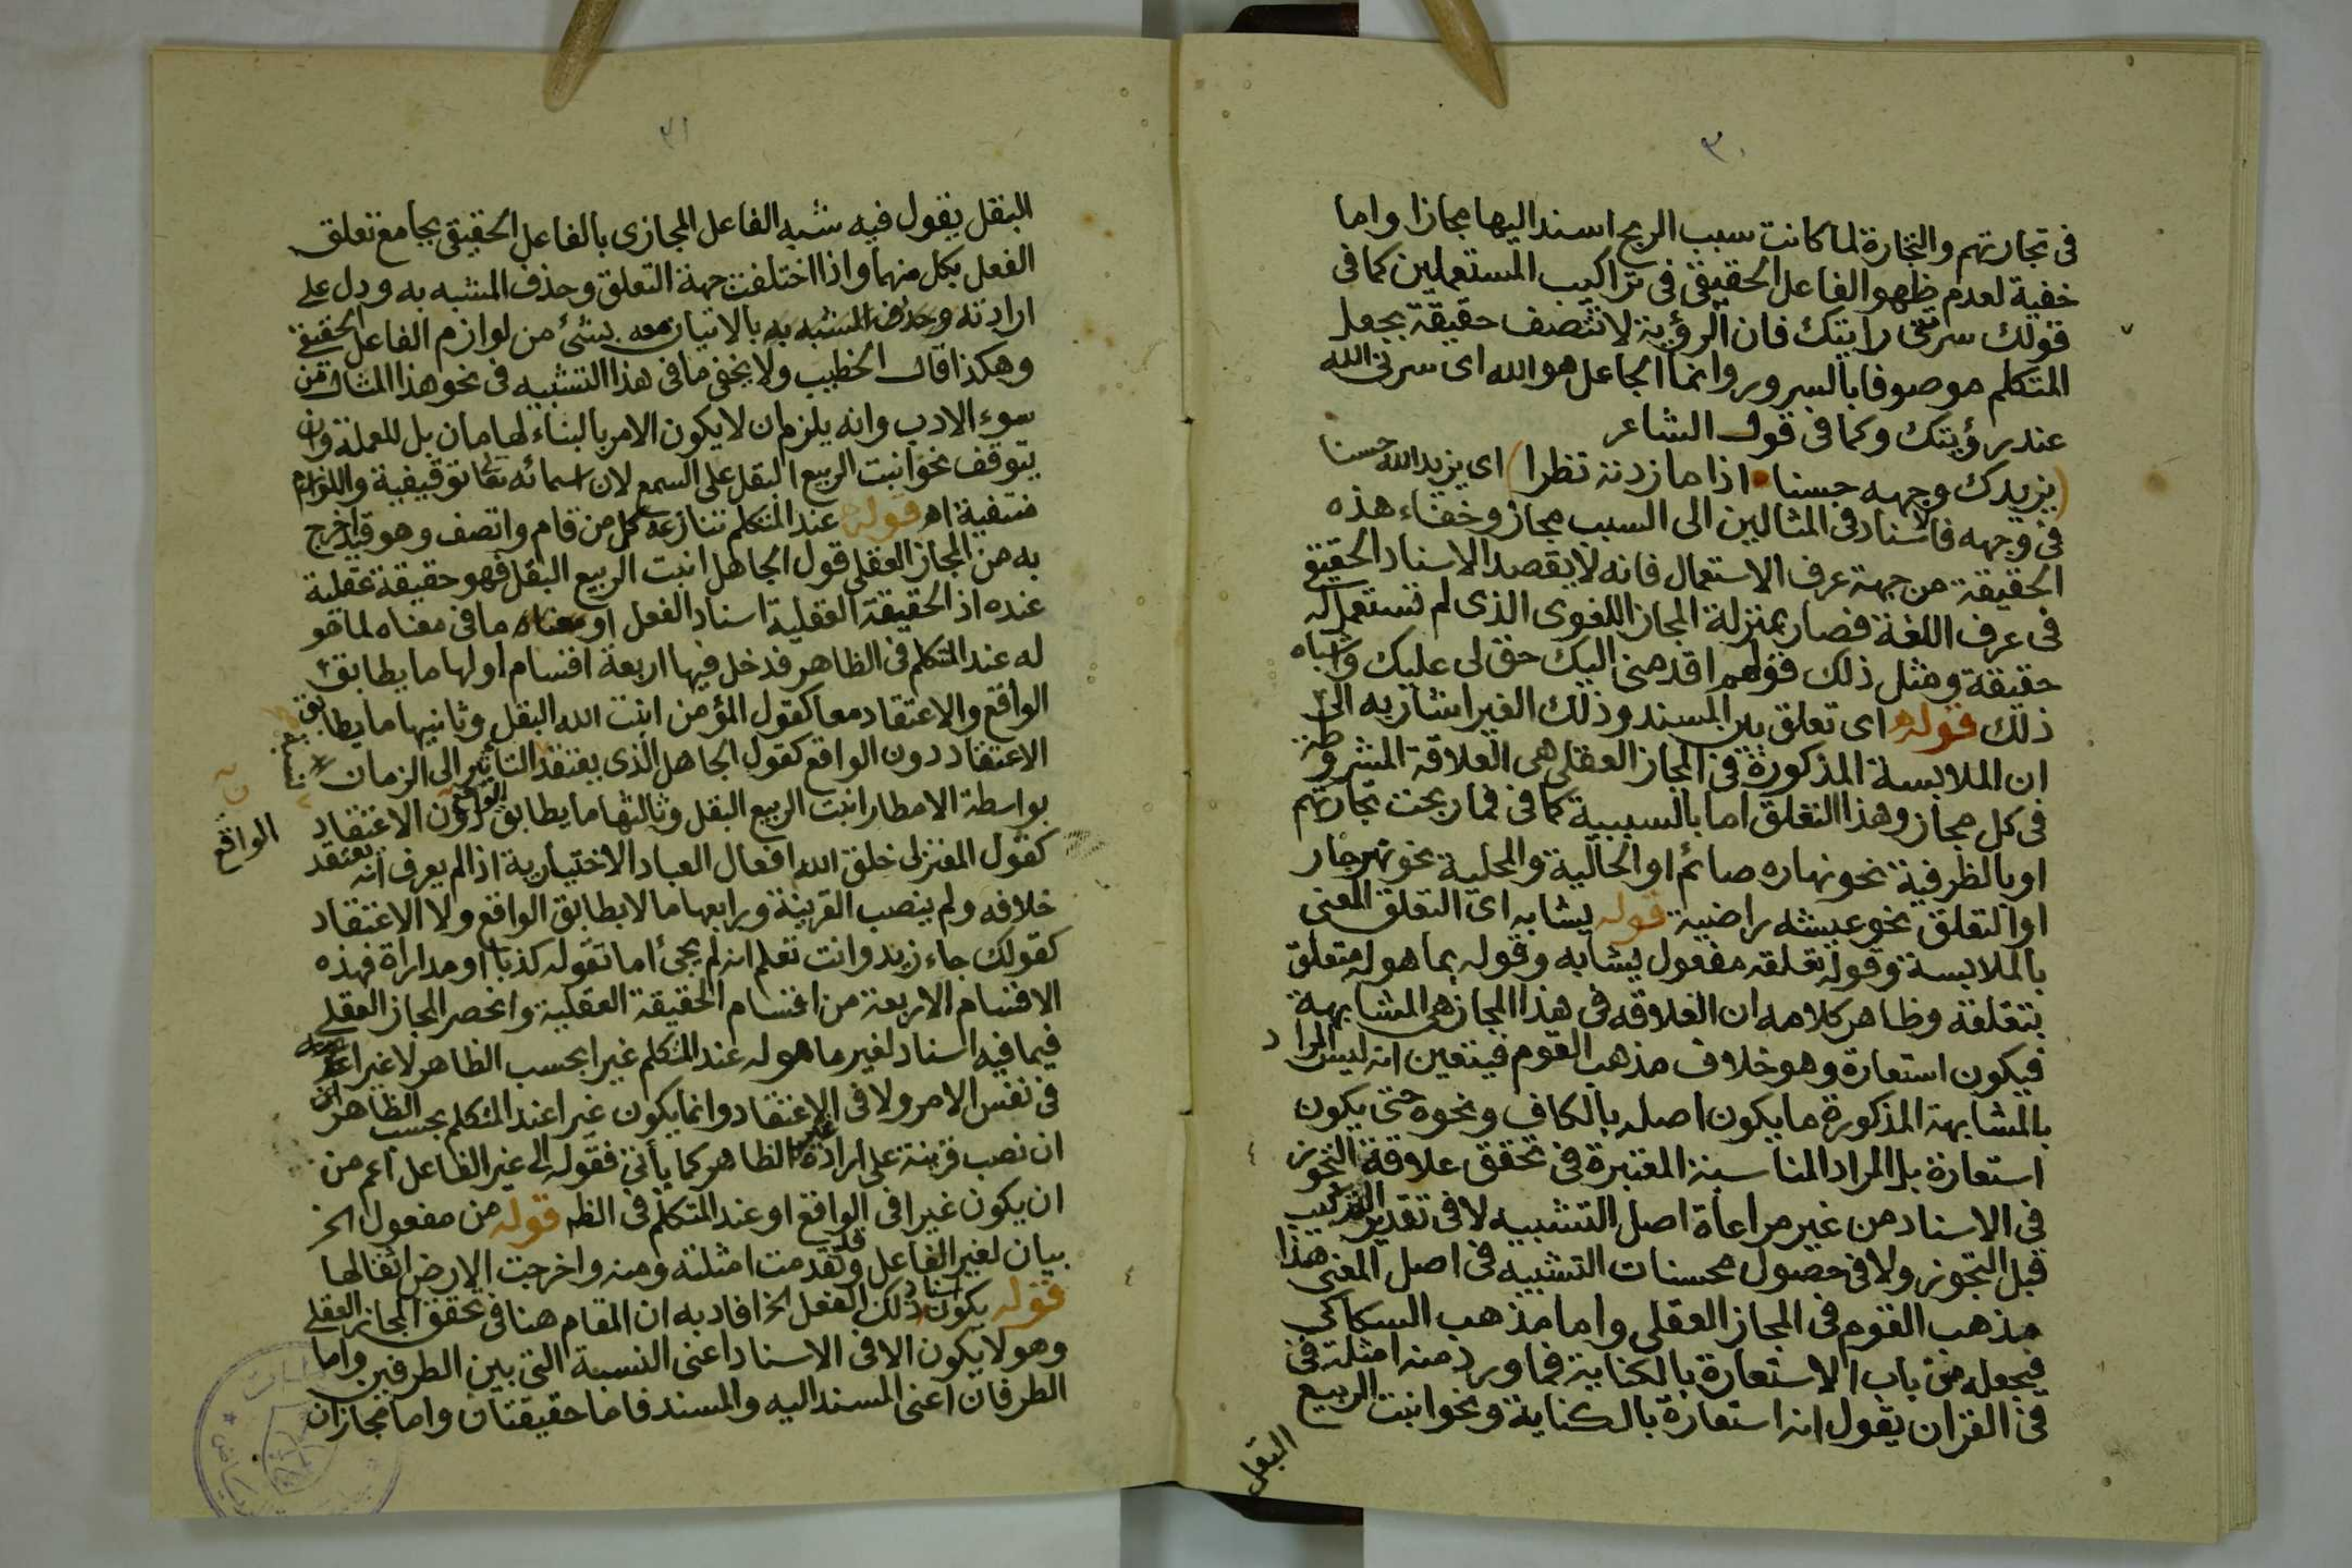 ٣٠
في تجارتهم والتجارة لما كانت سبب الربح اسند اليها مجازا واما
خفية لعدم ظهو الفاعل الحقيقي في تراكيب المستعملين كما في
قولك سرتني رايتك فان الرؤية لا تتصف حقيقة بجعل
المتكلم موصوفا بالسرور وانما الجاعل هو الله اى سرنى الله
عند رؤيتك وكما في قول الشاعر
(يزيدك وجهه حسنا • اذا ما زدته نظرا) اى يزيد الله حسنا
في وجهه فالاسناد في المثالين الى السبب مجاز وخفاء هذه
الحقيقة من جهة عرف الاستعمال فانه لا يقصد الاسناد الحقيقي
في عرف اللغة فصار بمنزلة المجاز اللغوى الذى لم تستعمل له
حقيقة ومثل ذلك قولهم اقدمني اليك حق لى عليك واشباه
ذلك قوله اى تعلق بين المسند وذلك الغير اشار به الى
ان الملابسة المذكورة في المجاز العقلي هى العلاقة المشروطة
في كل مجاز وهذا التعلق اما بالسببية كما في فما ربحت تجارتهم
او بالظرفية نحو نهاره صائم او الحالية والمحلية نحو نهر جار
او التعلق نحو عيشه راضية قوله يشابه اى التعلق المعنى
بالملابسة وقوله تعلقه مفعول يشابه وقوله بما هو له متعلق
بتعلقه وظاهر كلامه ان العلاقه في هذا المجاز هى المشابهة
فيكون استعارة وهو خلاف مذهب القوم فيتعين انه ليس المراد
بالمشابهة المذكورة ما يكون اصله بالكاف ونحوه حتى يكون
استعارة بل المراد المناسبة المعتبرة في تحقق علاقة التجوز
في الاسناد من غير مراعاة اصل التشبيه لا في تقدير التركيب
قبل التجوز ولا في حصول محسنات التشبيه في اصل المعنى هذا
مذهب القوم في المجاز العقلي واما مذهب السكاكي
فيجعله من باب الاستعارة بالكناية فما ورد منه امثلته في
في القران يقول انه استعارة بالكناية ونحو انبت الربيع
البقل
٣١
البقل يقول فيه شبه الفاعل المجازى بالفاعل الحقيقي بجامع تعلق
الفعل بكل منهما واذا اختلفت جهة التعلق وحذف المشبه به ودل على
ارادته وحذف المشبه به بالاتيان معه بشئ من لوازم الفاعل الحقيقي
وهكذا قال الخطيب ولا يخفى ما في هذا التشبيه في نحو هذا المثال من
سوء الادب وانه يلزم ان لا يكون الامر بالبناء لهامان بل للعملة وان
يتوقف نحو انبت الربيع البقل على السمع لان اسمائه تعا توقيفية واللوازم
منتفية اه قوله عند المتكلم تنازعه كل من قام واتصف وهو قيد اخرج
به من المجاز العقلي قول الجاهل انبت الربيع البقل فهو حقيقة عقلية
عنده اذ الحقيقة العقلية اسناد الفعل او معناه ما في معناه لما هو
له عند المتكلم في الظاهر فدخل فيها اربعة اقسام اولها ما يطابق
الواقع والاعتقاد معا كقول المؤمن انبت الله البقل وثانيها ما يطابق
الاعتقاد دون الواقع كقول الجاهل الذى يعتقد التأثير الى الزمان
بواسطة الامطار انبت الربيع البقل وثالثها ما يطابق الواقع دون الاعتقاد
الواقع
كقول المعتزلى خلق الله افعال العباد الاختيارية اذا لم يعرف انه يعتقد
خلافه ولم ينصب القرينة ورابعها ما لا يطابق الواقع ولا الاعتقاد
كقولك جاء زيد وانت تعلم انه لم يجئ اما تقوله كذبا او مداراة فهذه
الاقسام الاربعة من اقسام الحقيقة العقلية وانحصر المجاز العقلي
فيما فيه اسناد لغير ما هو له عند المتكلم غيرا بحسب الظاهر لا غيرا
في نفس الامر ولا في الاعتقاد وانما يكون غيرا عند المتكلم بحسب الظاهر
ان نصب قرينة على ارادة غير الظاهر كما يأتي فقوله الى غير الفاعل اعم من
ان يكون غيرا في الواقع او عند المتكلم في الظه قوله من مفعول الخ
بيان لغير الفاعل وقد تقدمت امثلته ومنه واخرجت الارض اثقالها
قوله يكون اسناد ذلك الفعل الخ افاد به ان المقام هنا في تحقق المجاز العقلي
وهو لا يكون الا في الاسناد اعنى النسبة التى بين الطرفين واما
الطرفان اعنى المسند اليه والمسند فاما حقيقتان واما مجازان